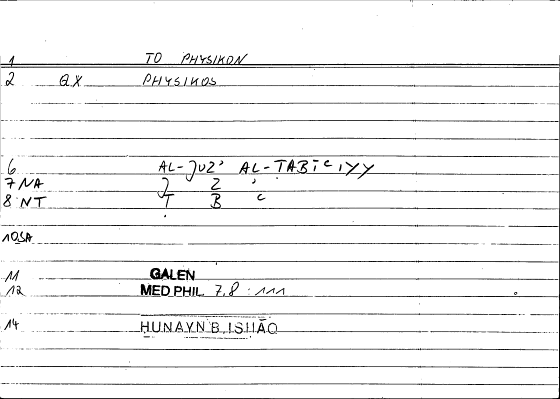 1 TO PHYSIKON
2 QX PHYSIKOS
6 AL-JUZ' AL-TABIʿIYY
7 NA J Z '
8 NT T B ʿ
10SA
11 GALEN
12 MED PHIL. 7,8 : 111
14 HUNAYN B. ISHĀQ